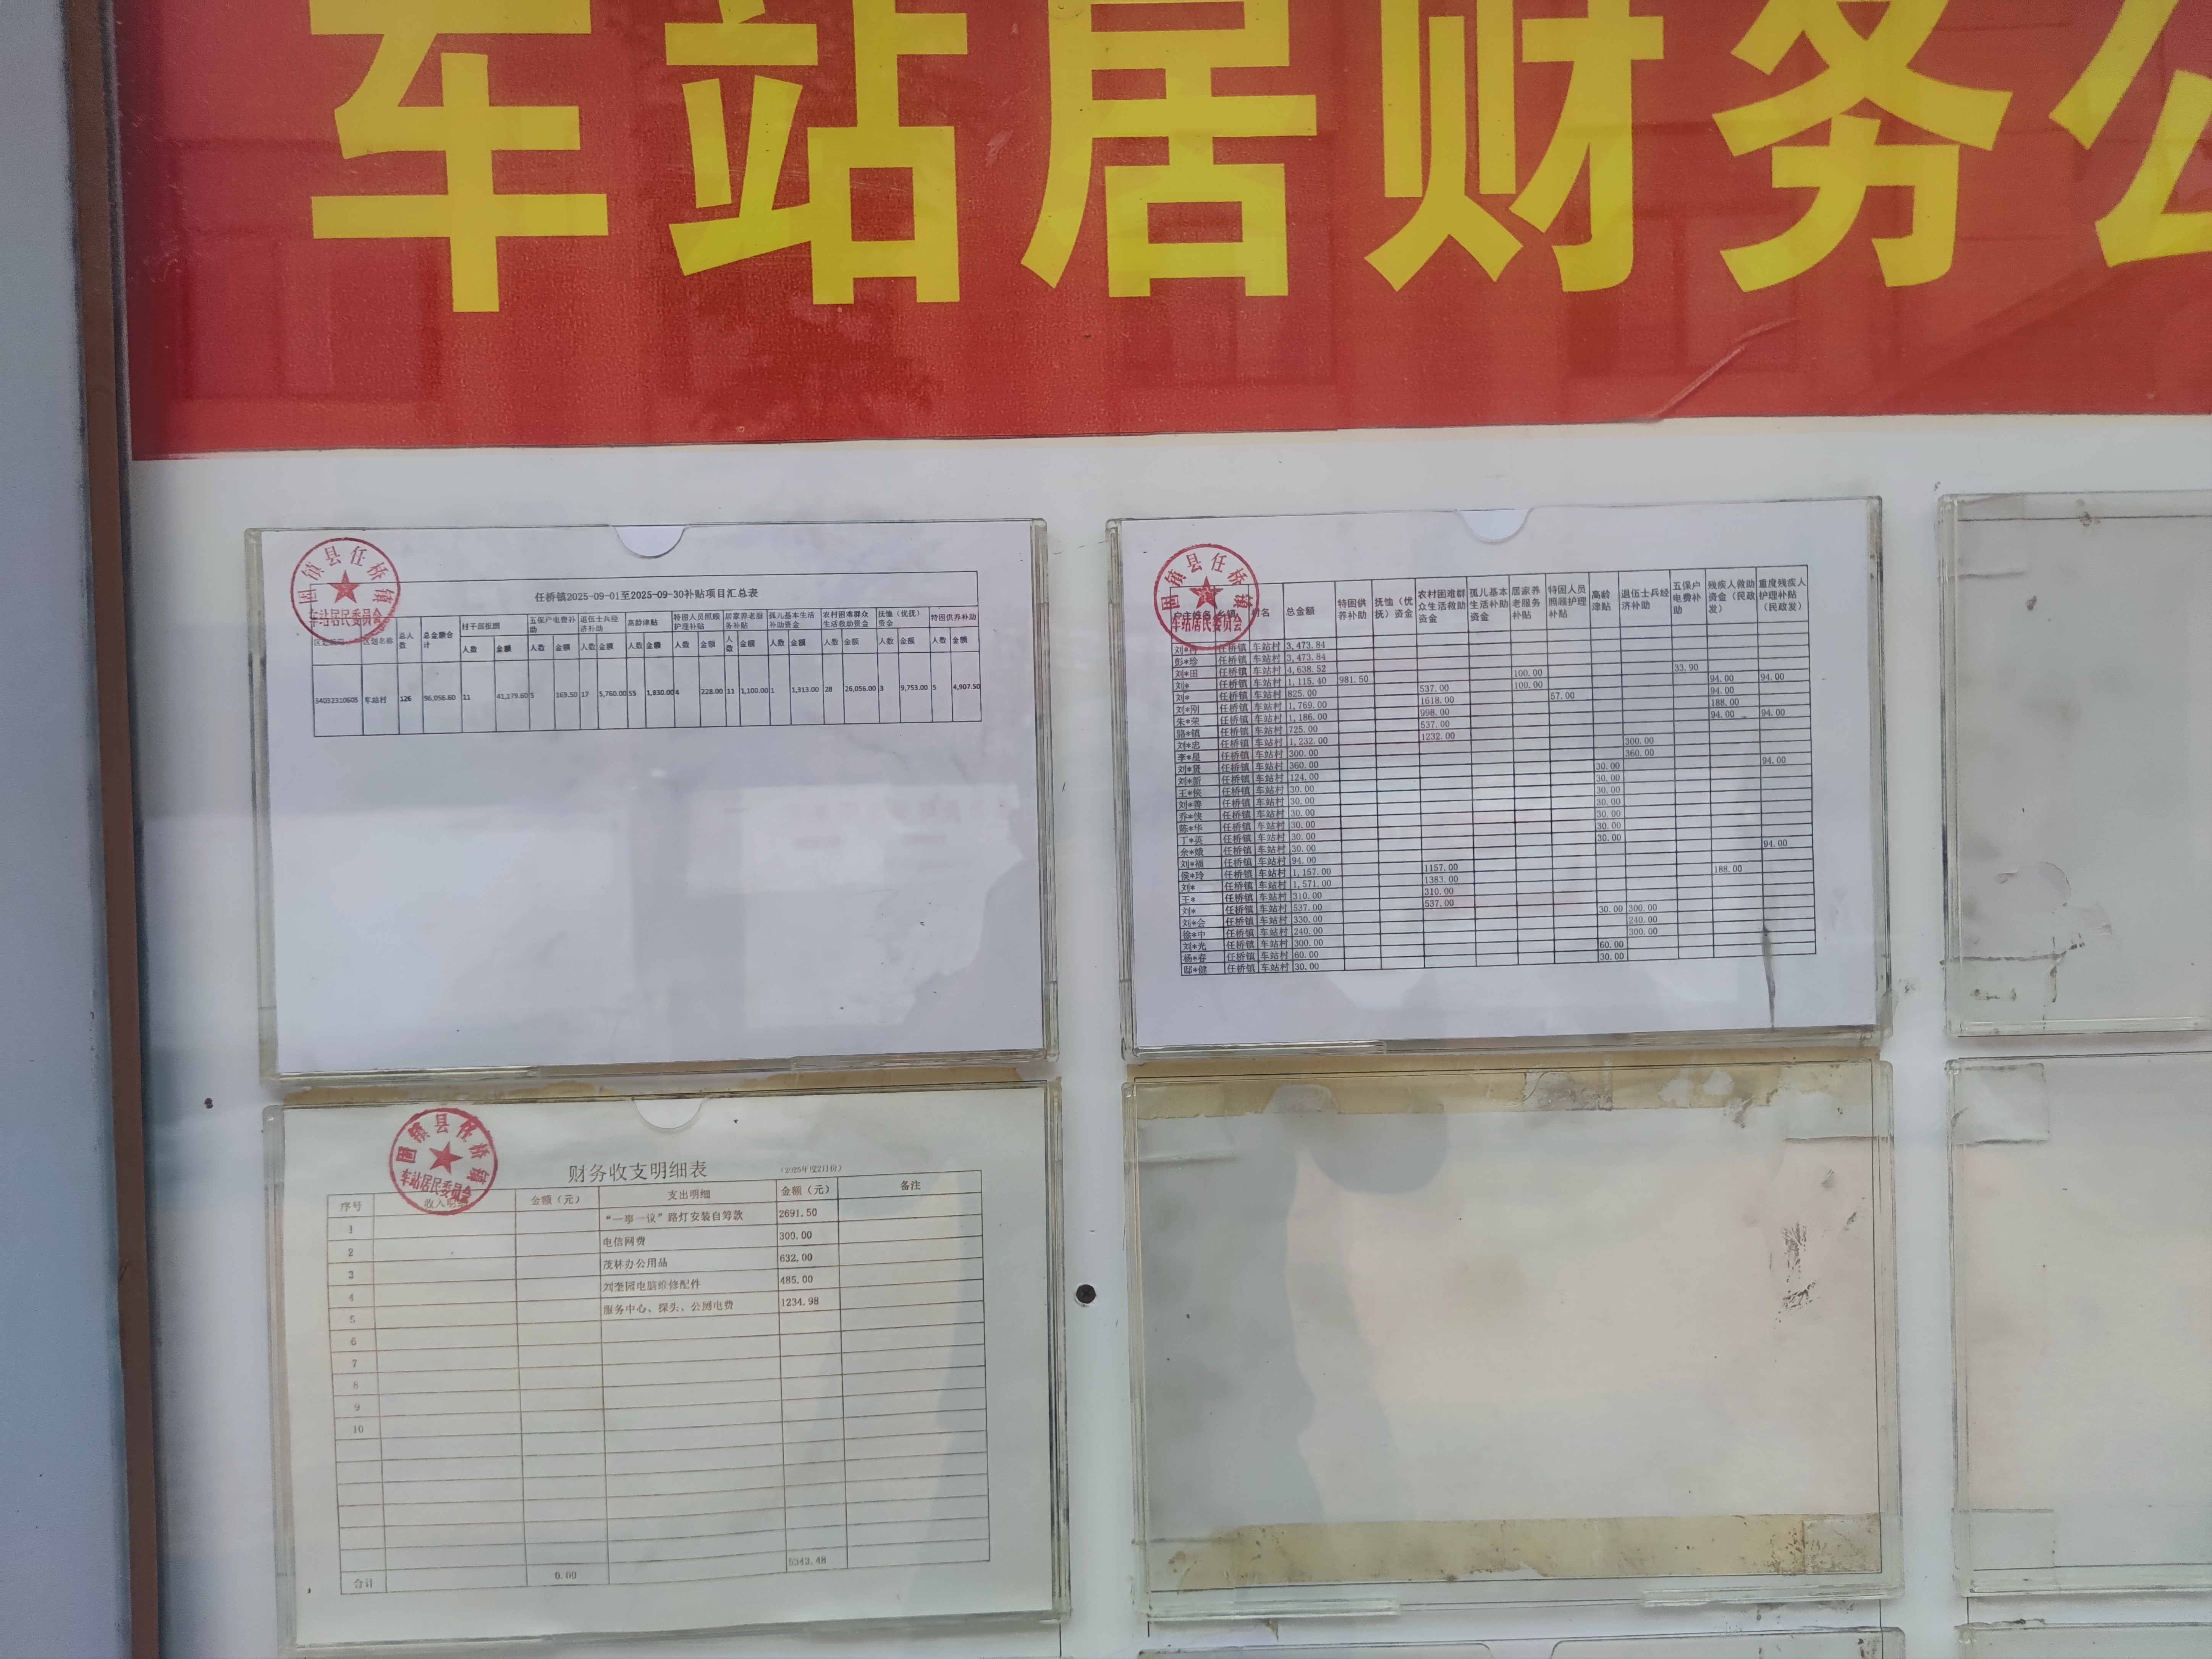 车站居财务公
固镇县任桥镇
车站居民委员会
任桥镇2025-09-01至2025-09-30补贴项目汇总表
区划名称 总人数 总金额合计 村干部报酬 五保户电费补助 退伍士兵经济补助 高龄津贴 特困人员照顾护理补贴 居家养老服务补贴 孤儿基本生活补助资金 农村困难群众生活救助资金 抚恤（优抚）资金 特困供养补助
人数 金额 人数 金额 人数 金额 人数 金额 人数 金额 人数 金额 人数 金额 人数 金额 人数 金额 人数 金额
34032310605 车站村 126 96,056.60 11 41,179.60 5 169.50 17 5,760.00 55 1,830.00 4 228.00 11 1,100.00 1 1,313.00 28 26,056.00 3 9,753.00 5 4,907.50
固镇县任桥镇
车站居民委员会
村名 总金额 特困供养补助 抚恤（优抚）资金 农村困难群众生活救助资金 孤儿基本生活补助资金 居家养老服务补贴 特困人员照顾护理补贴 高龄津贴 退伍士兵经济补助 五保户电费补助 残疾人救助资金（民政发） 重度残疾人护理补贴（民政发）
任桥镇 车站村 3,473.84
彭*珍 任桥镇 车站村 3,473.84
刘*田 任桥镇 车站村 4,638.52
刘* 任桥镇 车站村 1,115.40 981.50 100.00 33.90
刘* 任桥镇 车站村 825.00 537.00 100.00 94.00 94.00
刘*刚 任桥镇 车站村 1,769.00 1618.00 57.00 94.00
朱*荣 任桥镇 车站村 1,186.00 998.00 188.00
骆*镇 任桥镇 车站村 725.00 537.00 94.00 94.00
刘*忠 任桥镇 车站村 1,232.00 1232.00
李*星 任桥镇 车站村 300.00 300.00
刘*贤 任桥镇 车站村 360.00 360.00
刘*新 任桥镇 车站村 124.00 30.00 94.00
王*侠 任桥镇 车站村 30.00 30.00
刘*善 任桥镇 车站村 30.00 30.00
乔*侠 任桥镇 车站村 30.00 30.00
陈*华 任桥镇 车站村 30.00 30.00
丁*英 任桥镇 车站村 30.00 30.00
余*娥 任桥镇 车站村 30.00 30.00
刘*福 任桥镇 车站村 94.00 94.00
侯*玲 任桥镇 车站村 1,157.00 1157.00
刘* 任桥镇 车站村 1,571.00 1383.00 188.00
王* 任桥镇 车站村 310.00 310.00
刘* 任桥镇 车站村 537.00 537.00
刘*会 任桥镇 车站村 330.00 30.00 300.00
徐*中 任桥镇 车站村 240.00 240.00
刘*光 任桥镇 车站村 300.00 300.00
杨*春 任桥镇 车站村 60.00 60.00
邸*健 任桥镇 车站村 30.00 30.00
固镇县任桥镇
车站居民委员会
财务收支明细表 （2025年度2月份）
序号 收入明细 金额（元） 支出明细 金额（元） 备注
1 “一事一议”路灯安装自筹款 2691.50
2 电信网费 300.00
3 茂林办公用品 632.00
4 刘奎园电脑维修配件 485.00
5 服务中心、探头、公厕电费 1234.98
6
7
8
9
10
合计 0.00 5343.48